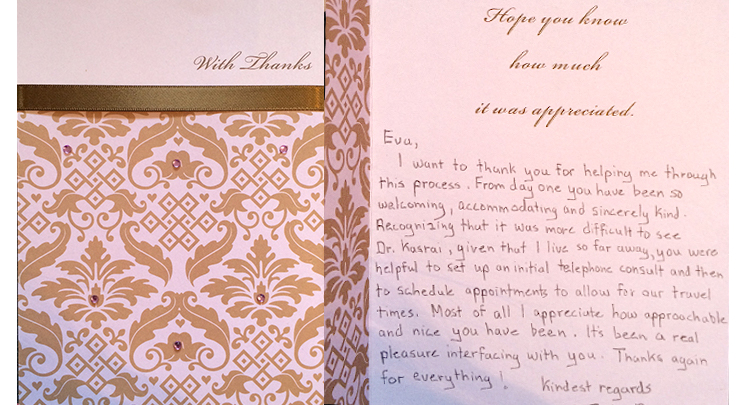 With Thanks
Hope you know
how much
it was appreciated.
Eva,
I want to thank you for helping me through
this process. From day one you have been so
welcoming, accommodating and sincerely kind.
Recognizing that it was more difficult to see
Dr. Kasrai, given that I live so far away, you were
helpful to set up an initial telephone consult and then
to schedule appointments to allow for our travel
times. Most of all I appreciate how approachable
and nice you have been. It's been a real
pleasure interfacing with you. Thanks again
for everything! Kindest regards